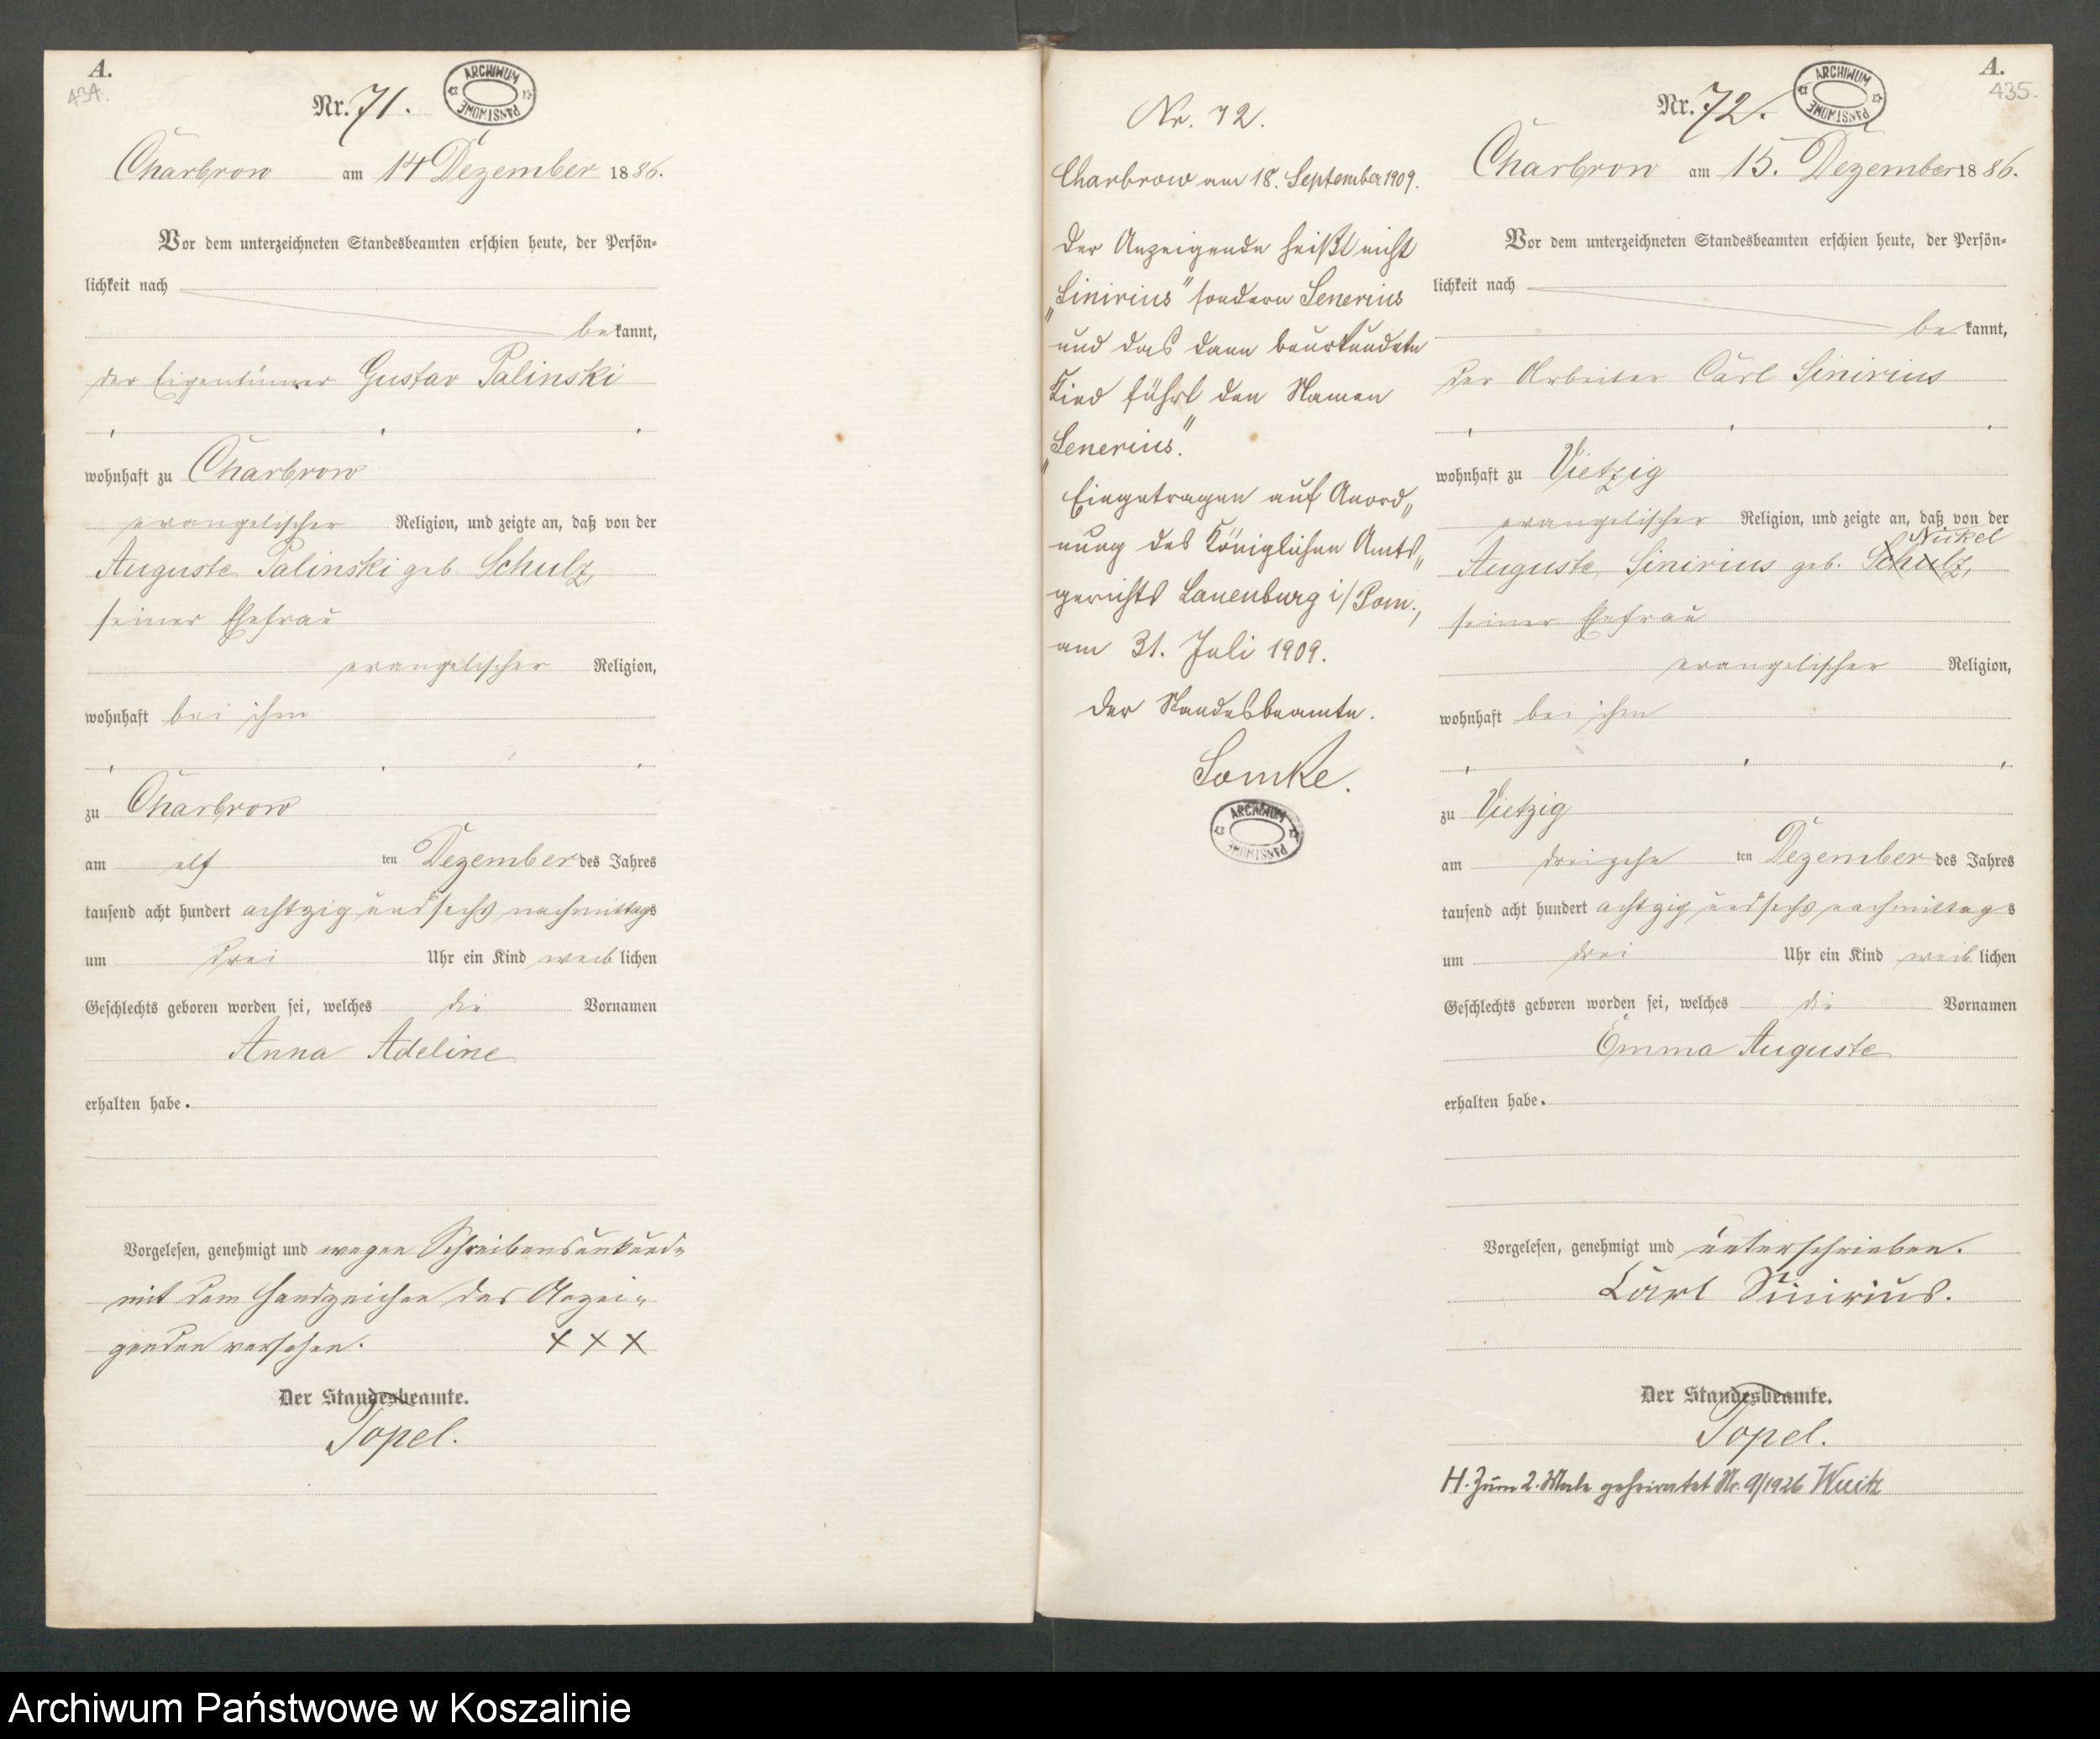 A.
434.
Nr. 71.
ARCHIWUM PAŃSTWOWE
Charbrow am 14 Dezember 1886.
Vor dem unterzeichneten Standesbeamten erschien heute, der Persön=
lichkeit nach
bekannt,
der Eigentümer Gustav Palinski
wohnhaft zu Charbrow
evangelischer Religion, und zeigte an, daß von der
Auguste Palinski geb. Schulz,
seiner Ehefrau
evangelischer Religion,
wohnhaft bei ihm
zu Charbrow
am elf ten Dezember des Jahres
tausend acht hundert achtzig und sechs nachmittags
um drei Uhr ein Kind weiblichen
Geschlechts geboren worden sei, welches die Vornamen
Anna Adeline
erhalten habe.
Vorgelesen, genehmigt und wegen Schreibensunkund=
mit dem Handzeichen des Anzei=
genden versehen. XXX
Der Standesbeamte.
Topel.
Nr. 72.
Charbrow am 18. September 1909.
Der Anzeigende heißt nicht
„Sinirius" sondern Senerius
und das dann beurkundete
Kind führt den Namen
„Senerius".
Eingetragen auf Anord„
nung des Königlichen Amts„
gerichts Lauenburg i/Pom.,
am 31. Juli 1909.
Der Standesbeamte.
Somke.
ARCHIWUM PAŃSTWOWE
A.
435.
Nr. 72.
ARCHIWUM PAŃSTWOWE
Charbrow am 15. Dezember 1886.
Vor dem unterzeichneten Standesbeamten erschien heute, der Persön=
lichkeit nach
bekannt,
der Arbeiter Carl Sinirius
wohnhaft zu Vietzig
evangelischer Religion, und zeigte an, daß von der
Nickel
Auguste Sinirius geb. Schulz,
seiner Ehefrau
evangelischer Religion,
wohnhaft bei ihm
zu Vietzig
am dreizehn ten Dezember des Jahres
tausend acht hundert achtzig und sechs nachmittags
um drei Uhr ein Kind weiblichen
Geschlechts geboren worden sei, welches die Vornamen
Emma Auguste
erhalten habe.
Vorgelesen, genehmigt und unterschrieben.
Carl Sinirius.
Der Standesbeamte.
Topel.
H. Zum 2. Male geheiratet Nr. 9/1926
Archiwum Państwowe w Koszalinie